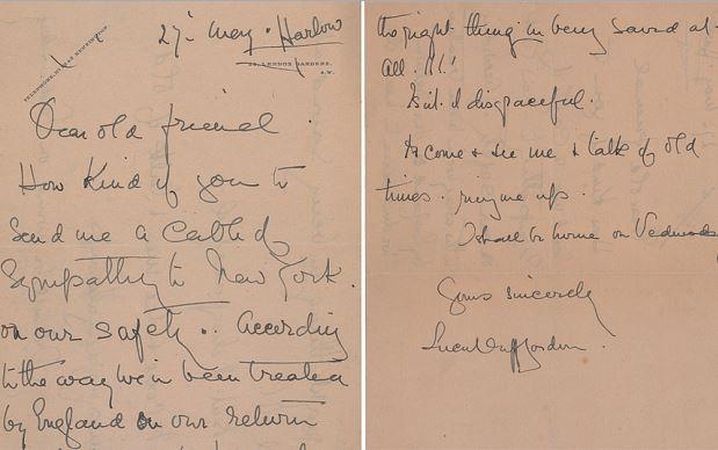 27th May. Harlow
LENNOX GARDENS,
S.W.
Dear old friend.
How kind of you to
send me a cable of
sympathy to New York.
on our safety.. According
to the way we've been treated
by England on our return
the right thing in being saved at
all.!!!!
Isn't it disgraceful.
Do come & see me & talk of old
times. ring me up.
I shall be home on Wednesday
Yours sincerely
Lucile Duff Gordon.